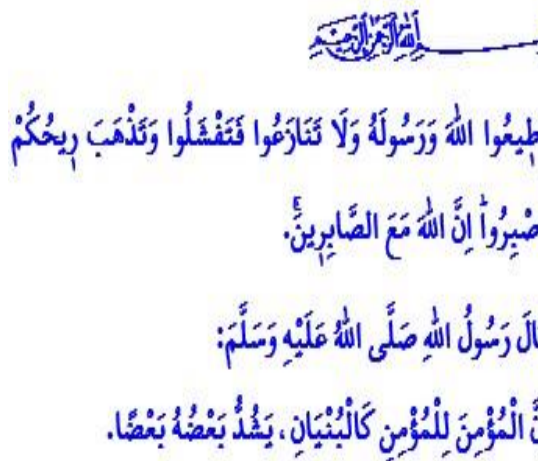 اللّٰهِ الرَّحْمٰنِ الرَّحِيمِ
طِيعُوا اللّٰهَ وَرَسُولَهُ وَلَا تَنَازَعُوا فَتَفْشَلُوا وَتَذْهَبَ رِيحُكُمْ
صْبِرُواۜ اِنَّ اللّٰهَ مَعَ الصَّابِرِينَۚ.
الَ رَسُولُ اللّٰهِ صَلَّى اللّٰهُ عَلَيْهِ وَسَلَّمَ:
نَّ الْمُؤْمِنَ لِلْمُؤْمِنِ كَالْبُنْيَانِ، يَشُدُّ بَعْضُهُ بَعْضًا.